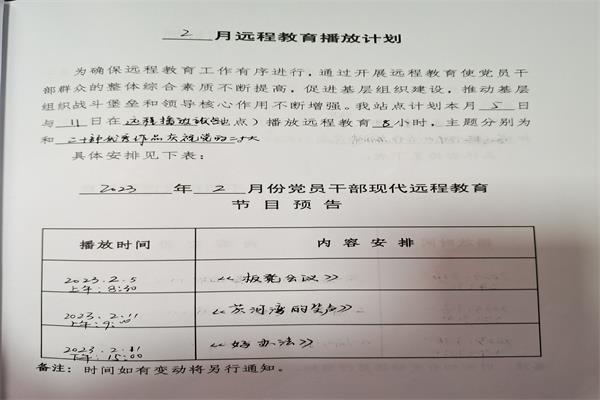 2 月远程教育播放计划
为确保远程教育工作有序进行，通过开展远程教育使党员干
部群众的整体综合素质不断提高，促进基层组织建设，推动基层
组织战斗堡垒和领导核心作用不断增强。我站点计划本月 5 日
与 11 日在 远程播放 点）播放远程教育 8 小时，主题分别为
和 二十 优秀作品庆祝党的二十大
具体安排见下表：
2023 年 2 月份党员干部现代远程教育
节目预告
播放时间 内容安排
2023.2.5 《板凳会议》
上午：8:30
2023.2.11 《茨河湾的笑声》
上午：9:00
2023.2.11 《好办法》
下午：15:00
备注：时间如有变动将另行通知。